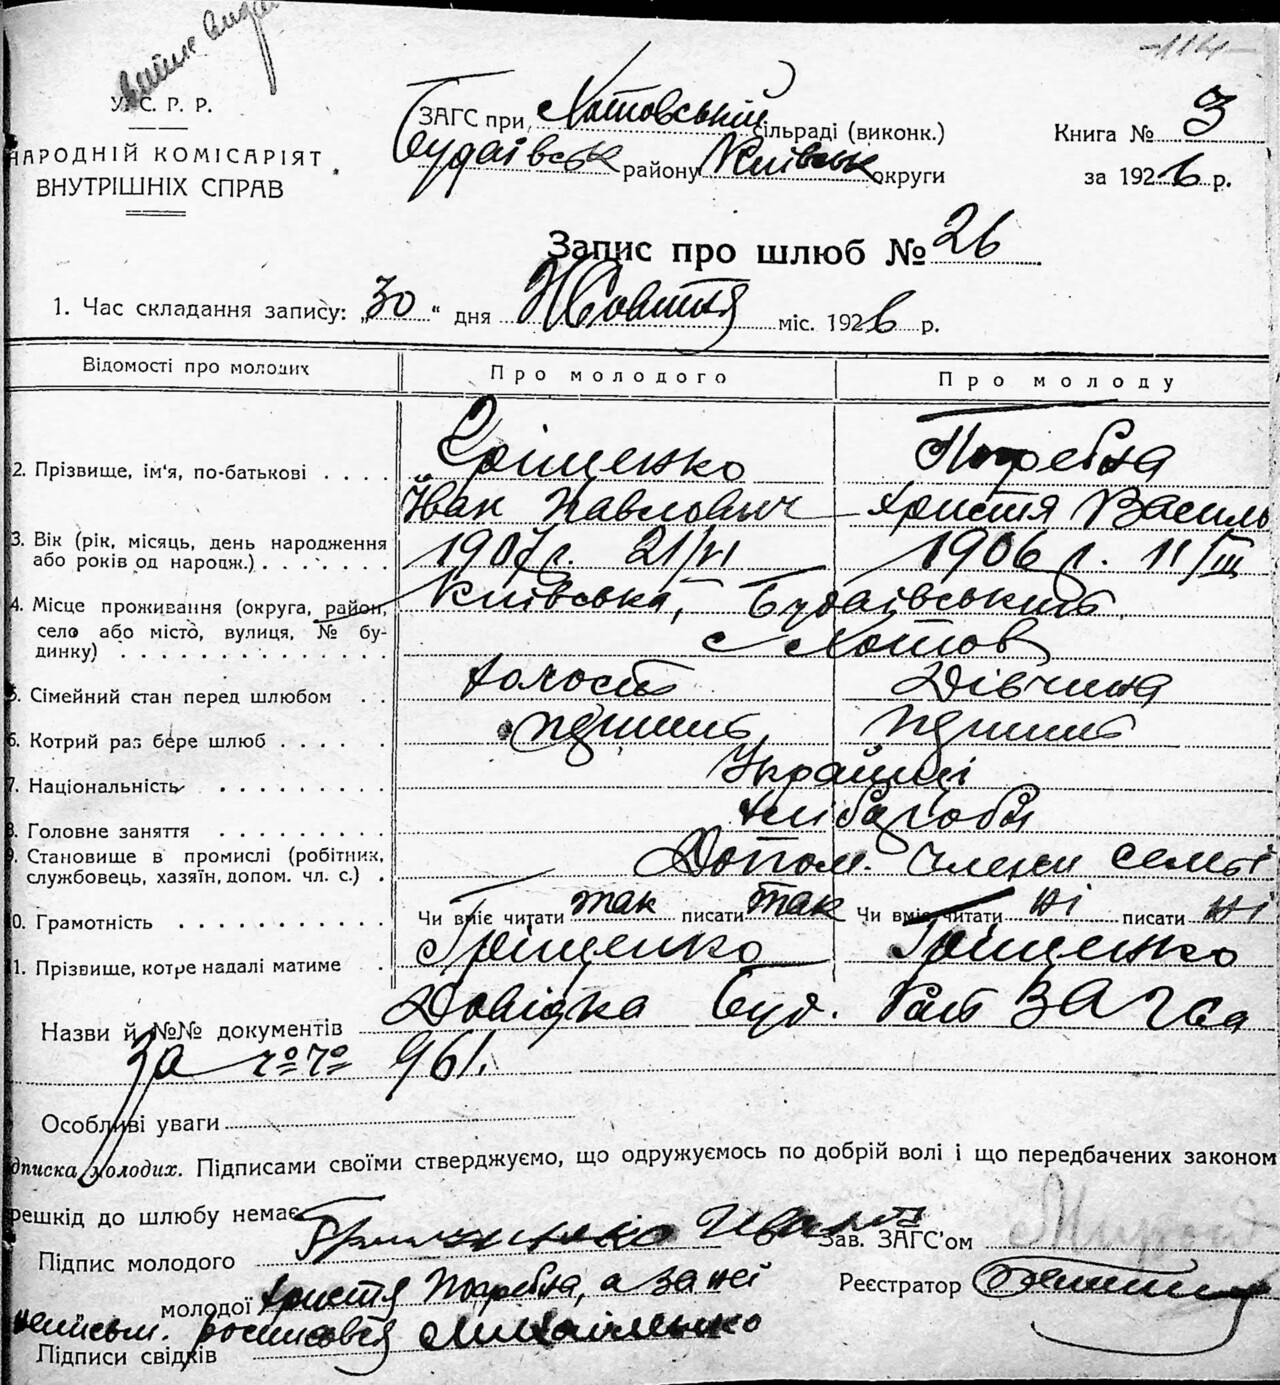 -114-
У. С. Р. Р.
НАРОДНІЙ КОМІСАРІЯТ
ВНУТРІШНІХ СПРАВ
ЗАГС при Хотовській сільраді (виконк.)
Будаївськ району Київськ округи
Книга № 3
за 1926 р.
Запис про шлюб № 26
1. Час складання запису: „30“ дня Жовтня міс. 1926 р.
Відомості про молодих Про молодого Про молоду
2. Прізвище, ім'я, по-батькові . . . . Гріщенко Погребна
Іван Павлович Христя Василь
3. Вік (рік, місяць, день народження або років од нарощж.) . . . . . . . 1907 р. 21/VI 1906 р. 11/III
4. Місце проживання (округа, район, Київська, Будаївський
село або місто, вулиця, № бу- с Хотов
динку) . . . . . . . . . . . . . .
5. Сімейний стан перед шлюбом . . Холост Дівчина
6. Котрий раз бере шлюб . . . . . перший перший
7. Національність . . . . . . . . . Українці
8. Головне заняття . . . . . . . . . Хлібороби
9. Становище в промислі (робітник, Допом. члени семьї
службовець, хазяїн, допом. чл. с.) .
10. Грамотність . . . . . . . . . . . Чи вміє читати так писати так Чи вміє читати ні писати ні
11. Прізвище, котре надалі матиме . Гріщенко Гріщенко
Назви й №№ документів Довідка Буд. Рай ЗАГСа
за 961.
Особливі уваги
дписка молодих. Підписами своїми стверджуємо, що одружуємось по добрій волі і що передбачених законом
решкід до шлюбу немає
Підпис молодого Грищенко Иван
Зав. ЗАГС'ом
молодої Христя Погребна, а за неї
Реєстратор
неписьм. росписався Михайленко
Підписи свідків